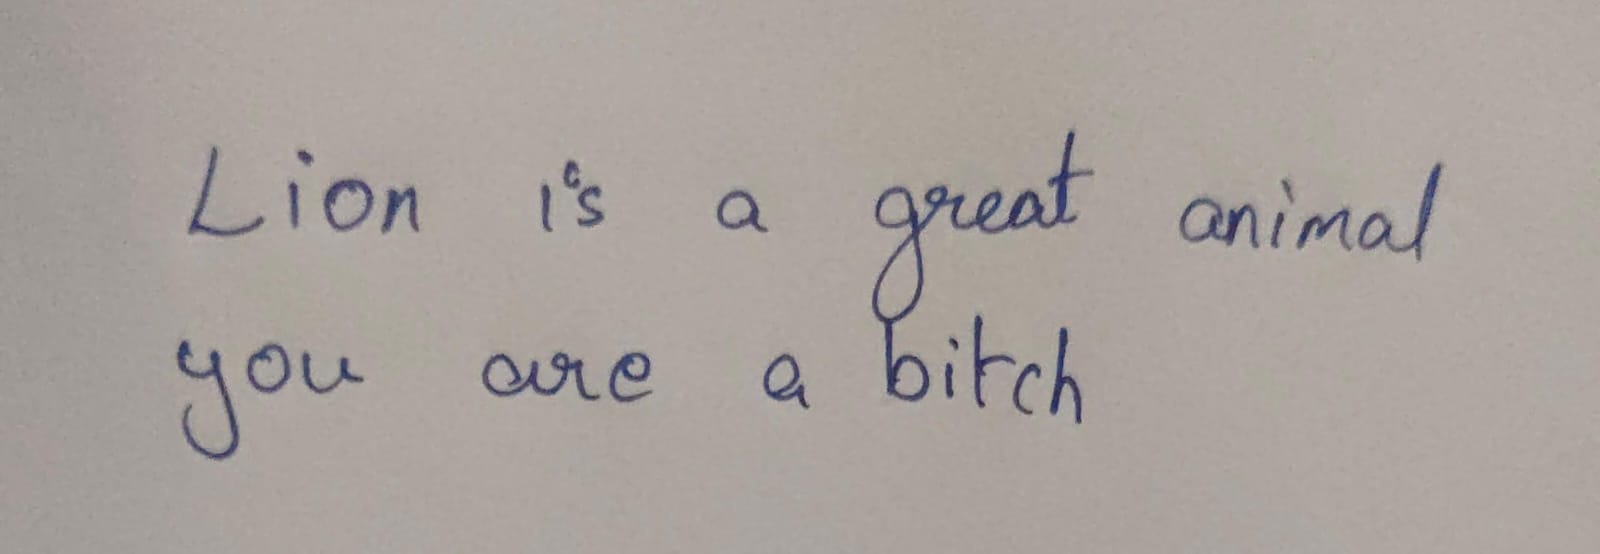 Lion is a great animal
you are a bitch